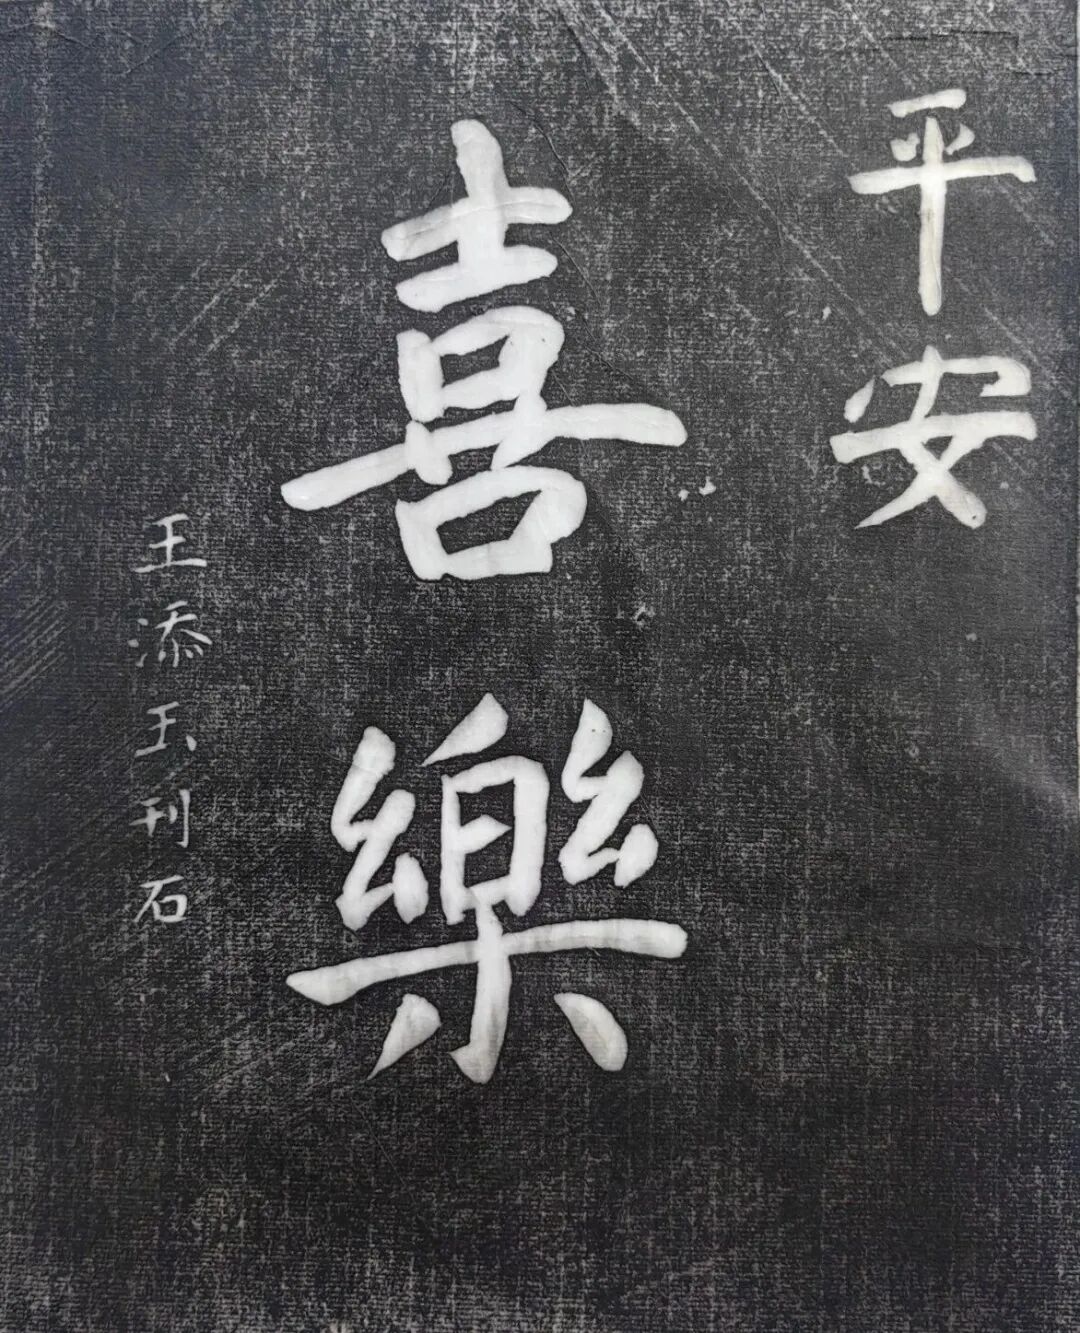 平安
喜樂
王添玉刊石